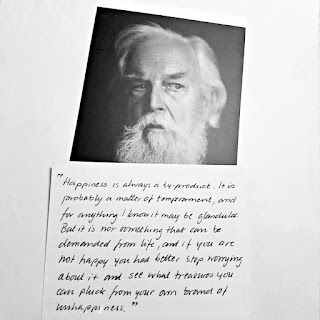 "Happiness is always a by-product. It is
probably a matter of temperament, and
for anything I know it may be glandular.
But it is not something that can be
demanded from life, and if you are
not happy you had better stop worrying
about it and see what treasures you
can pluck from your own brand of
unhappiness."